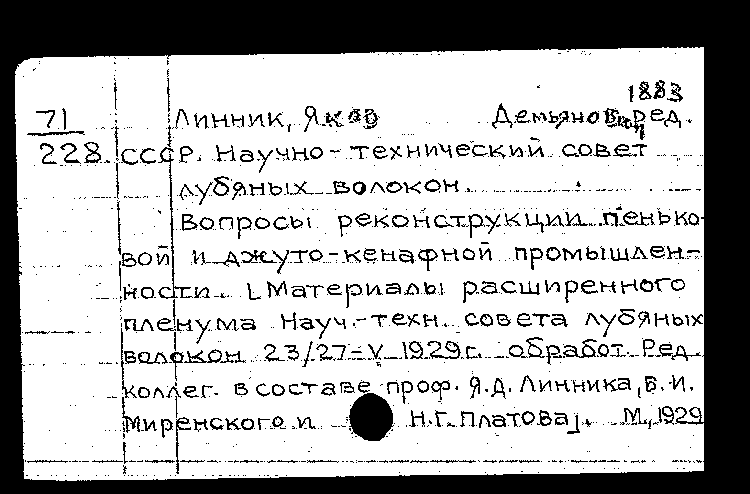 1883
71 Линник, Яков Демьянович, ред.
228 СССР. Научно-технический совет
лубяных волокон.
Вопросы реконструкции пенько-
вой и джуто-кенафной промышлен-
ности. [Материалы расширенного
пленума Науч.-техн. совета лубяных
волокон 23/27-V 1929г. обработ. Ред.
коллег. в составе проф. Я.Д. Линника, В.И.
Миренского и Н.Г. Платова]. М., 1929